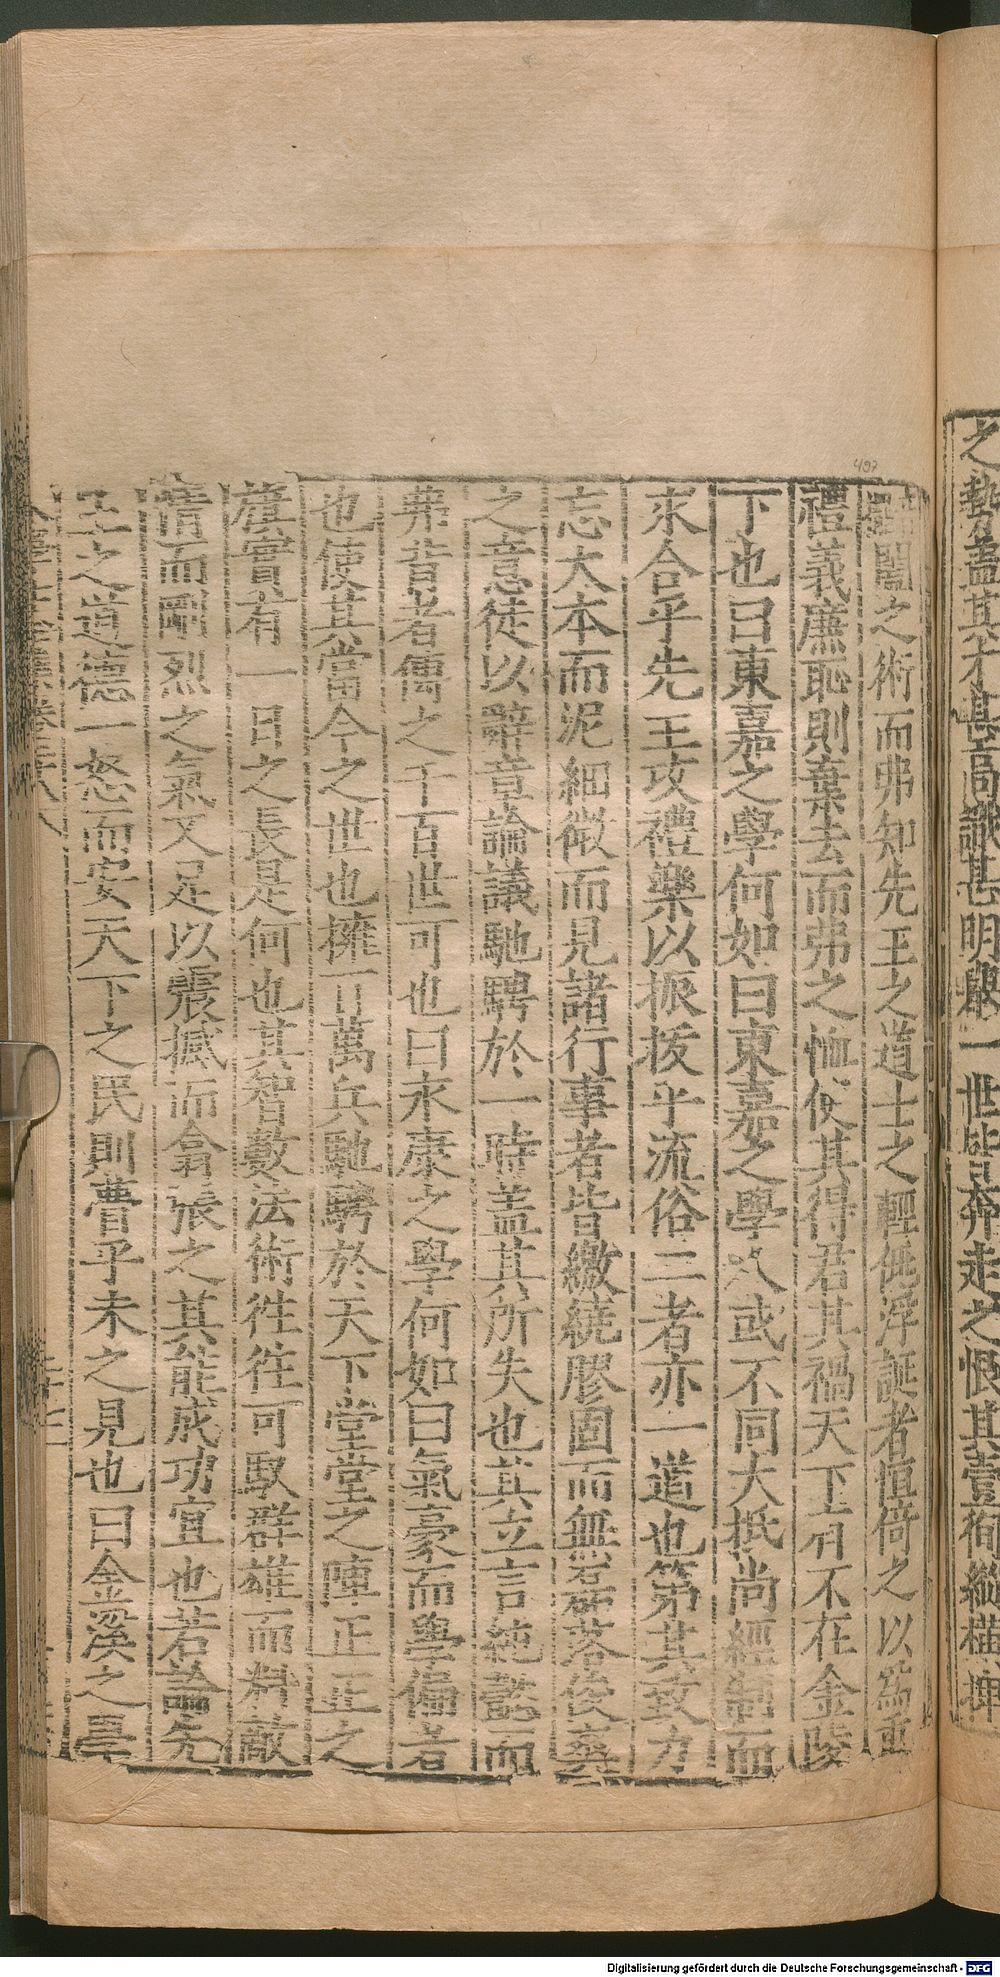 之勢蓋其才甚高識甚明舉一世皆奔走之恨其蕾徇縱橫捭
闔之術而弗知先王之道士之輕佻浮誕者恒倚之以爲重
禮義廉恥則棄去而弗之恤使其得君其禍天下有不在金陵
下也曰東嘉之學何如曰東嘉之學人或不同大抵尚經制而
求合乎先王攻禮樂以振拔乎流俗二者亦一道也第其致力
忘大本而泥細微而見諸行事者皆繳繞膠固而無磊落俊爽
之意徒以辭章論議馳騁於一時盖其所失也其立言純懿而
弗背者傳之千百世可也曰永康之學何如曰氣豪而學偏者
也使其當今之世也擁百萬兵馳騁於天下堂堂之陣正正之
旗實有一日之長是何也其智數法術往往可馭群雄而料敵
情而剛烈之氣又足以震撼而翕張之其能成功宜也若論先
王之道德一怒而安天下之民則瞢乎未之見也曰金溪之學
三十二
497
Digitalisierung gefördert durch die Deutsche Forschungsgemeinschaft - DFG